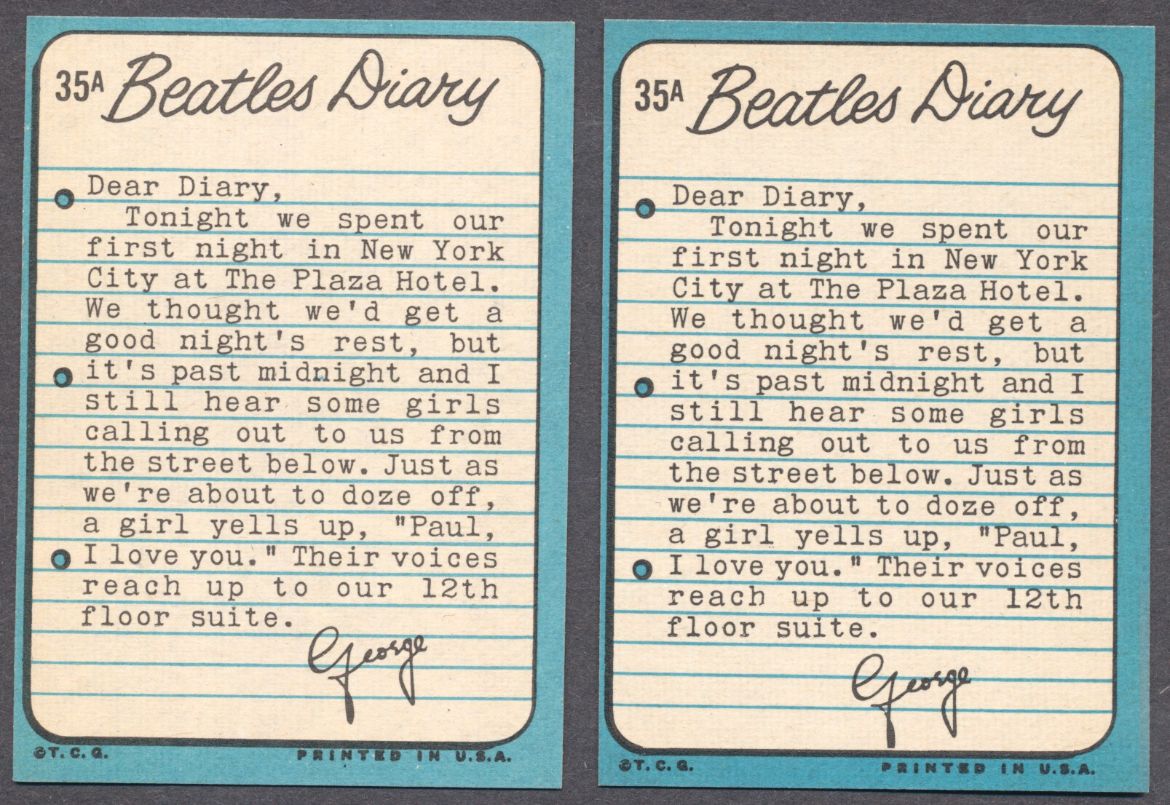 35A Beatles Diary
Dear Diary,
Tonight we spent our
first night in New York
City at The Plaza Hotel.
We thought we'd get a
good night's rest, but
it's past midnight and I
still hear some girls
calling out to us from
the street below. Just as
we're about to doze off,
a girl yells up, "Paul,
I love you." Their voices
reach up to our 12th
floor suite.
George
©T.C.G. PRINTED IN U.S.A.
35A Beatles Diary
Dear Diary,
Tonight we spent our
first night in New York
City at The Plaza Hotel.
We thought we'd get a
good night's rest, but
it's past midnight and I
still hear some girls
calling out to us from
the street below. Just as
we're about to doze off,
a girl yells up, "Paul,
I love you." Their voices
reach up to our 12th
floor suite.
George
©T.C.G. PRINTED IN U.S.A.